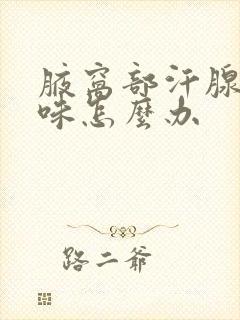 腋窩部汗腺
味怎麼办
路二爷